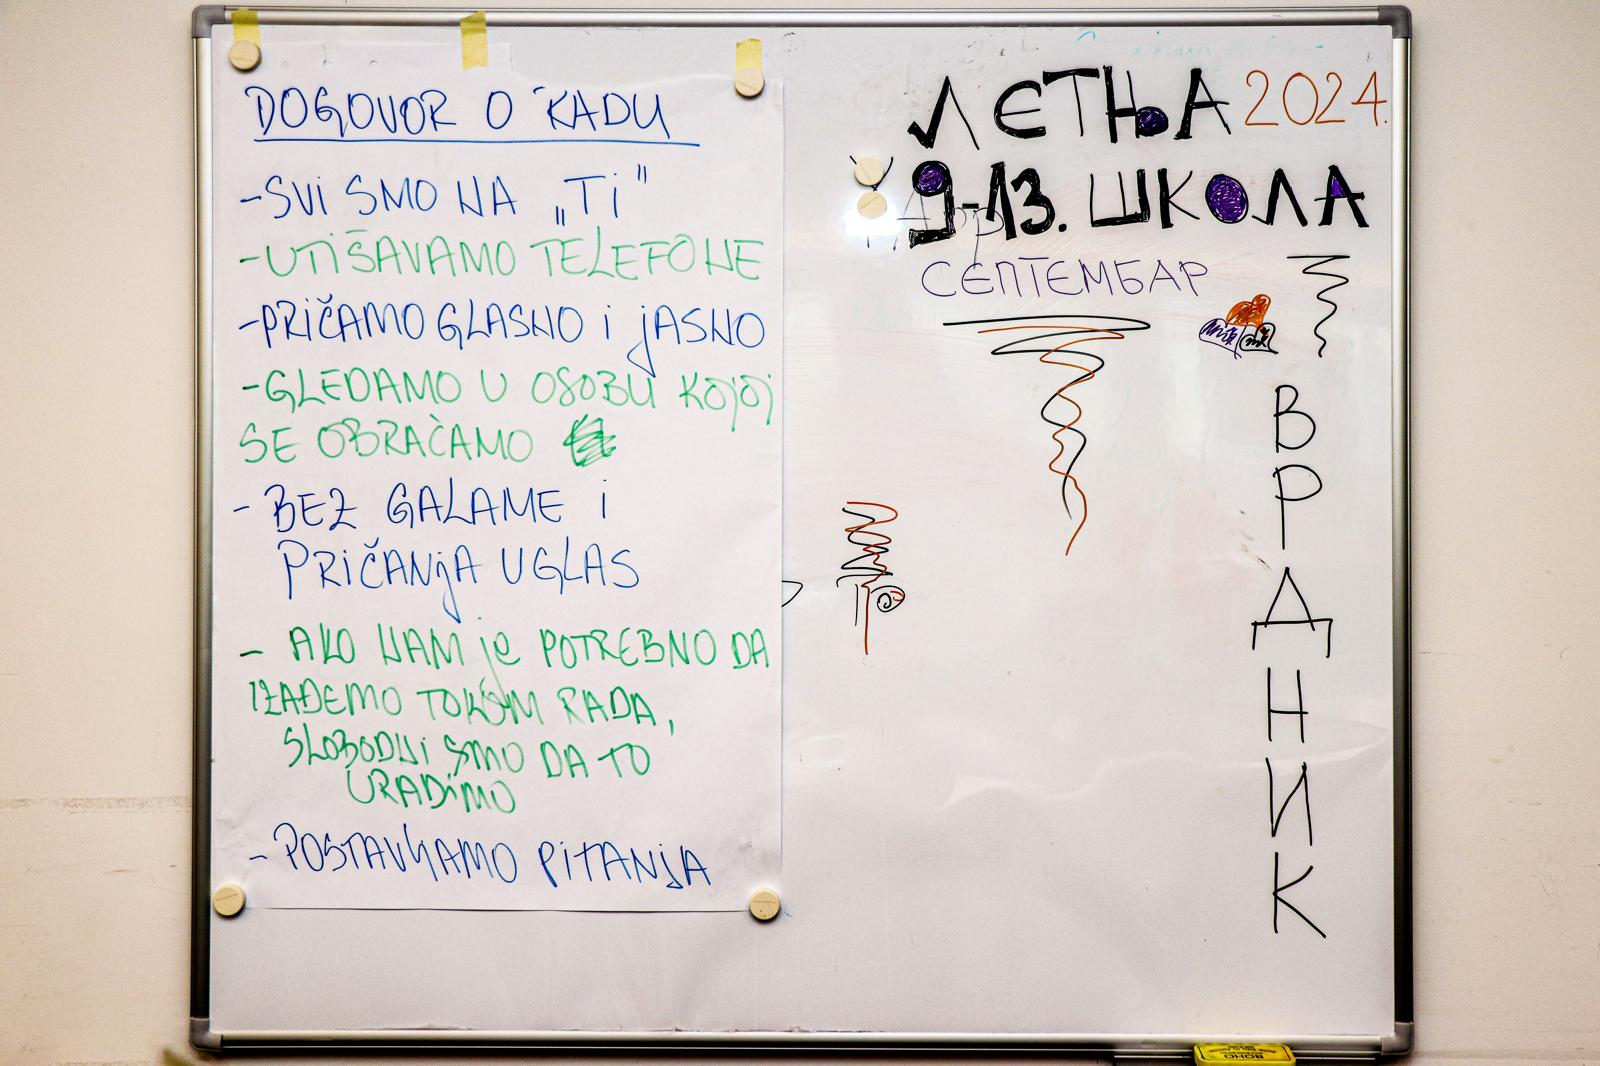 DOGOVOR O RADU
-SVI SMO NA „TI"
-UTIŠAVAMO TELEFONE
-PRIČAMO GLASNO I JASNO
-GLEDAMO U OSOBU KOJOJ
SE OBRAĆAMO
- BEZ GALAME I
PRIČANJA UGLAS
- AKO NAM JE POTREBNO DA
IZAĐEMO TOKOM RADA,
SLOBODNI SMO DA TO
URADIMO
- POSTAVLJAMO PITANJA
ЛЕТЊА 2024.
9-13. ШКОЛА
СЕПТЕМБАР
ВРДНИК